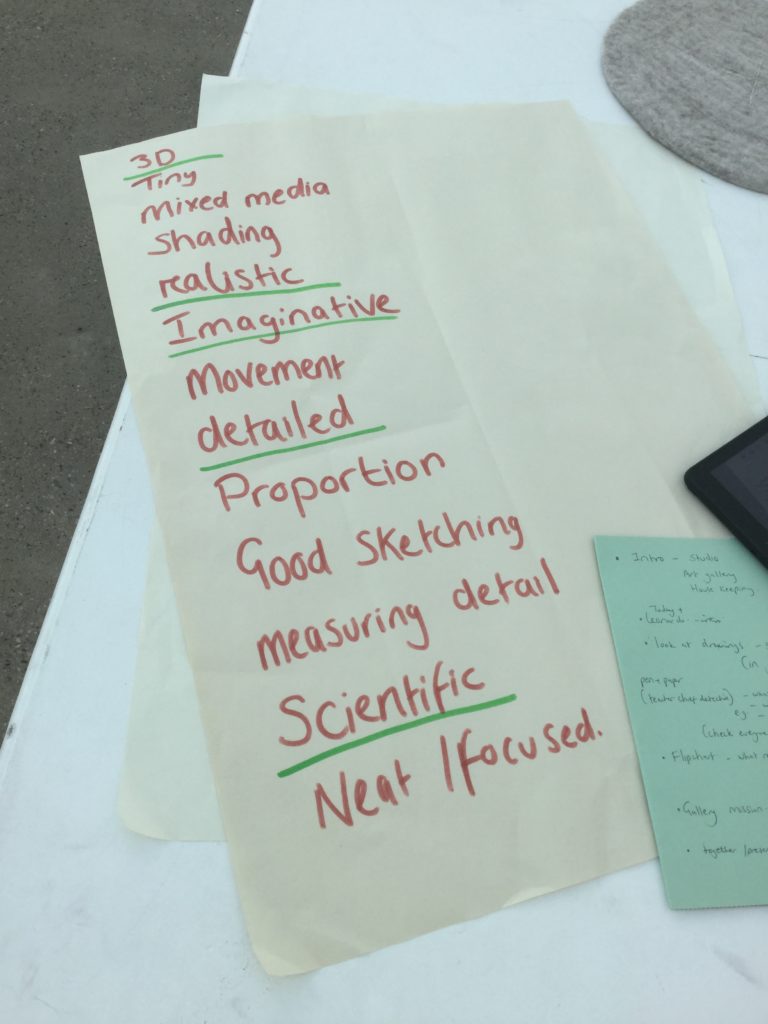 3D
Tiny
Mixed media
Shading
realistic
Imaginative
Movement
detailed
Proportion
Good Sketching
measuring detail
Scientific
Neat /focused.
• Intro - Studio
Art gallery
House keeping
Today +
• look at drawings -
(in
pen + paper
(teacher chief detective) -
eg -
(check
• Flipchart - what
• Gallery mission
• together /